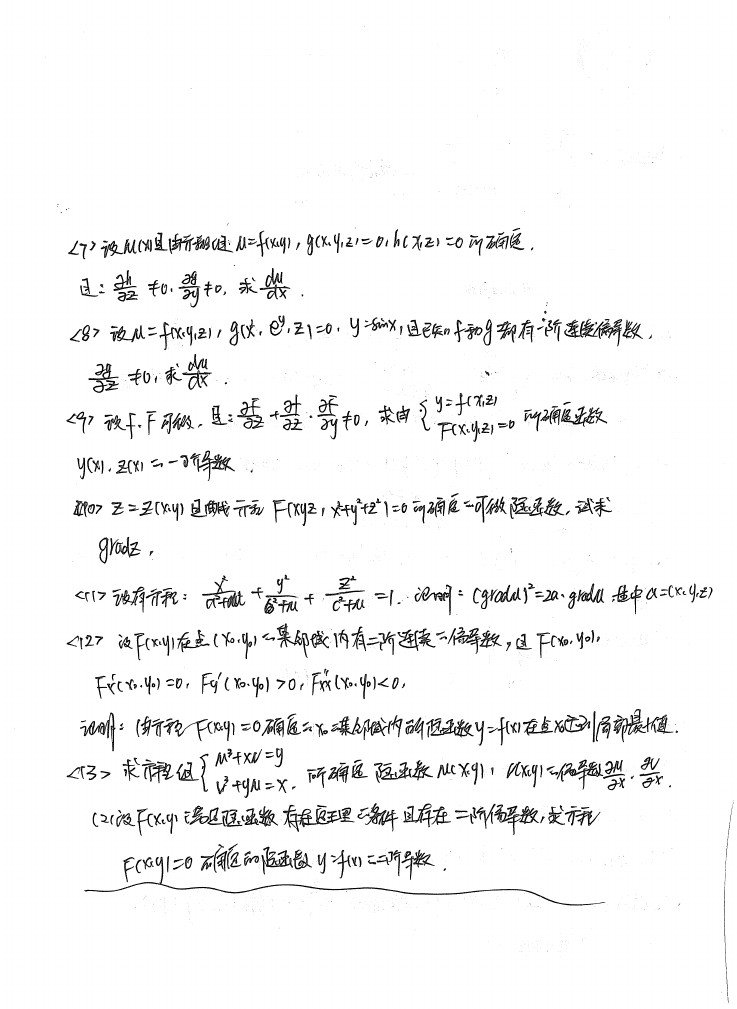 <7> 设u(x)是由方程组: u=f(x,y), g(x,y,z)=0, h(x,z)=0 所确定,
且: ∂h/∂z ≠0, ∂g/∂y ≠0, 求 du/dx .
<8> 设u=f(x,y,z), g(x², e^y, z)=0, y=sinx, 且已知 f和g都有一阶连续偏导数,
∂g/∂z ≠0, 求 du/dx .
<9> 设f、F可微, 且: ∂F/∂z + ∂f/∂z · ∂F/∂y ≠0, 求由 { y=f(x,z) F(x,y,z)=0 所确定函数
y(x), z(x) 一阶导数 .
<10> z=z(x,y) 是由方程 F(xyz, x²+y²+z²)=0 所确定可微隐函数, 试求
gradz,
<11> 设有方程: x²/(a²+u) + y²/(b²+u) + z²/(c²+u) =1. 证明: (gradu)²=2a·gradu 其中 a=(x,y,z)
<12> 设F(x,y)在点(x₀,y₀)某邻域内有二阶连续偏导数, 且 F(x₀,y₀),
Fx'(x₀,y₀)=0, Fy'(x₀,y₀)>0, Fxx''(x₀,y₀)<0,
证明: 由方程 F(x,y)=0 确定 x₀某邻域内的隐函数y=f(x)在点x₀达到局部最小值.
<13> 求方程组 { u³+xv=y v³+yu=x, 所确定隐函数 u(x,y), v(x,y) 偏导数 ∂u/∂x, ∂v/∂x .
(2)设F(x,y)满足隐函数存在定理条件且存在二阶偏导数, 求方程
F(x,y)=0 确定的隐函数 y=f(x) 二阶导数.